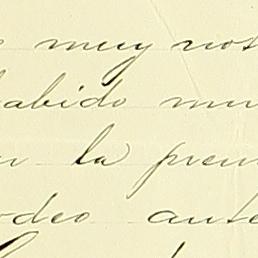 muy nos
habido mu
la pren
deo ante